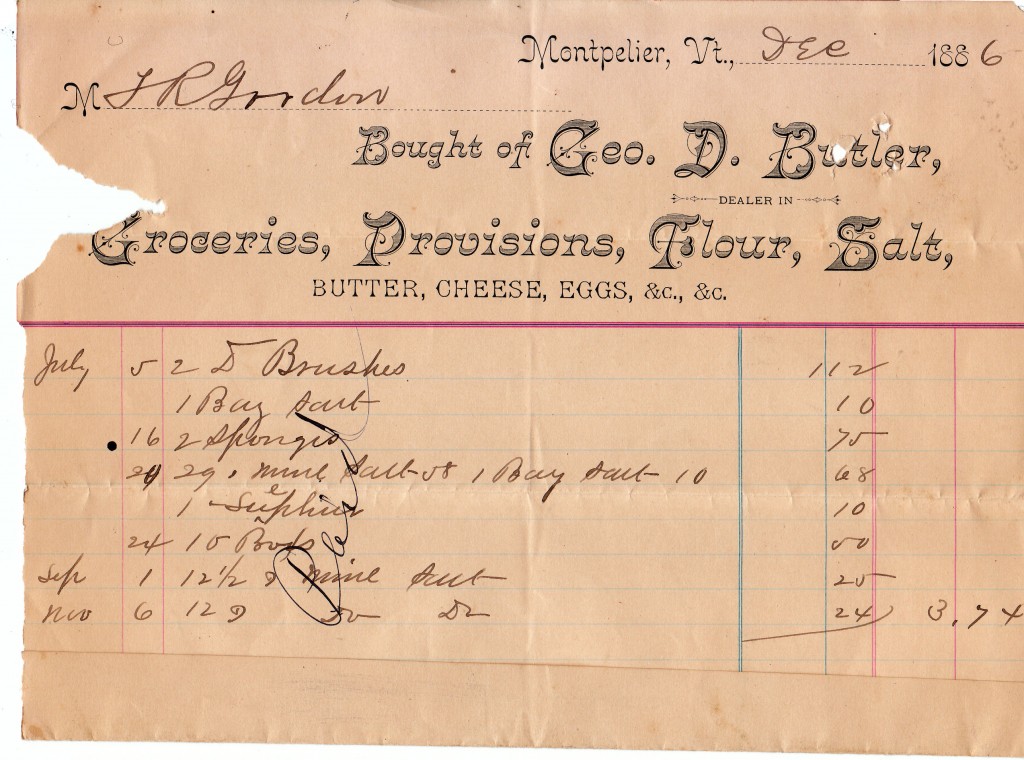 Montpelier, Vt., Dec 1886
M F R Gordon
Bought of Geo. D. Butler,
DEALER IN
Groceries, Provisions, Flour, Salt,
BUTTER, CHEESE, EGGS, &c., &c.
July 5 2 D Brushes 112
1 Bag Salt 10
16 2 Sponges 75
29 . mine Salt 58 1 Bag Salt 10 68
1 Sulphur 10
24 10 50
Sep 1 12 1/2 mine Salt 25
Nov 6 12 Do Do 24 3.74